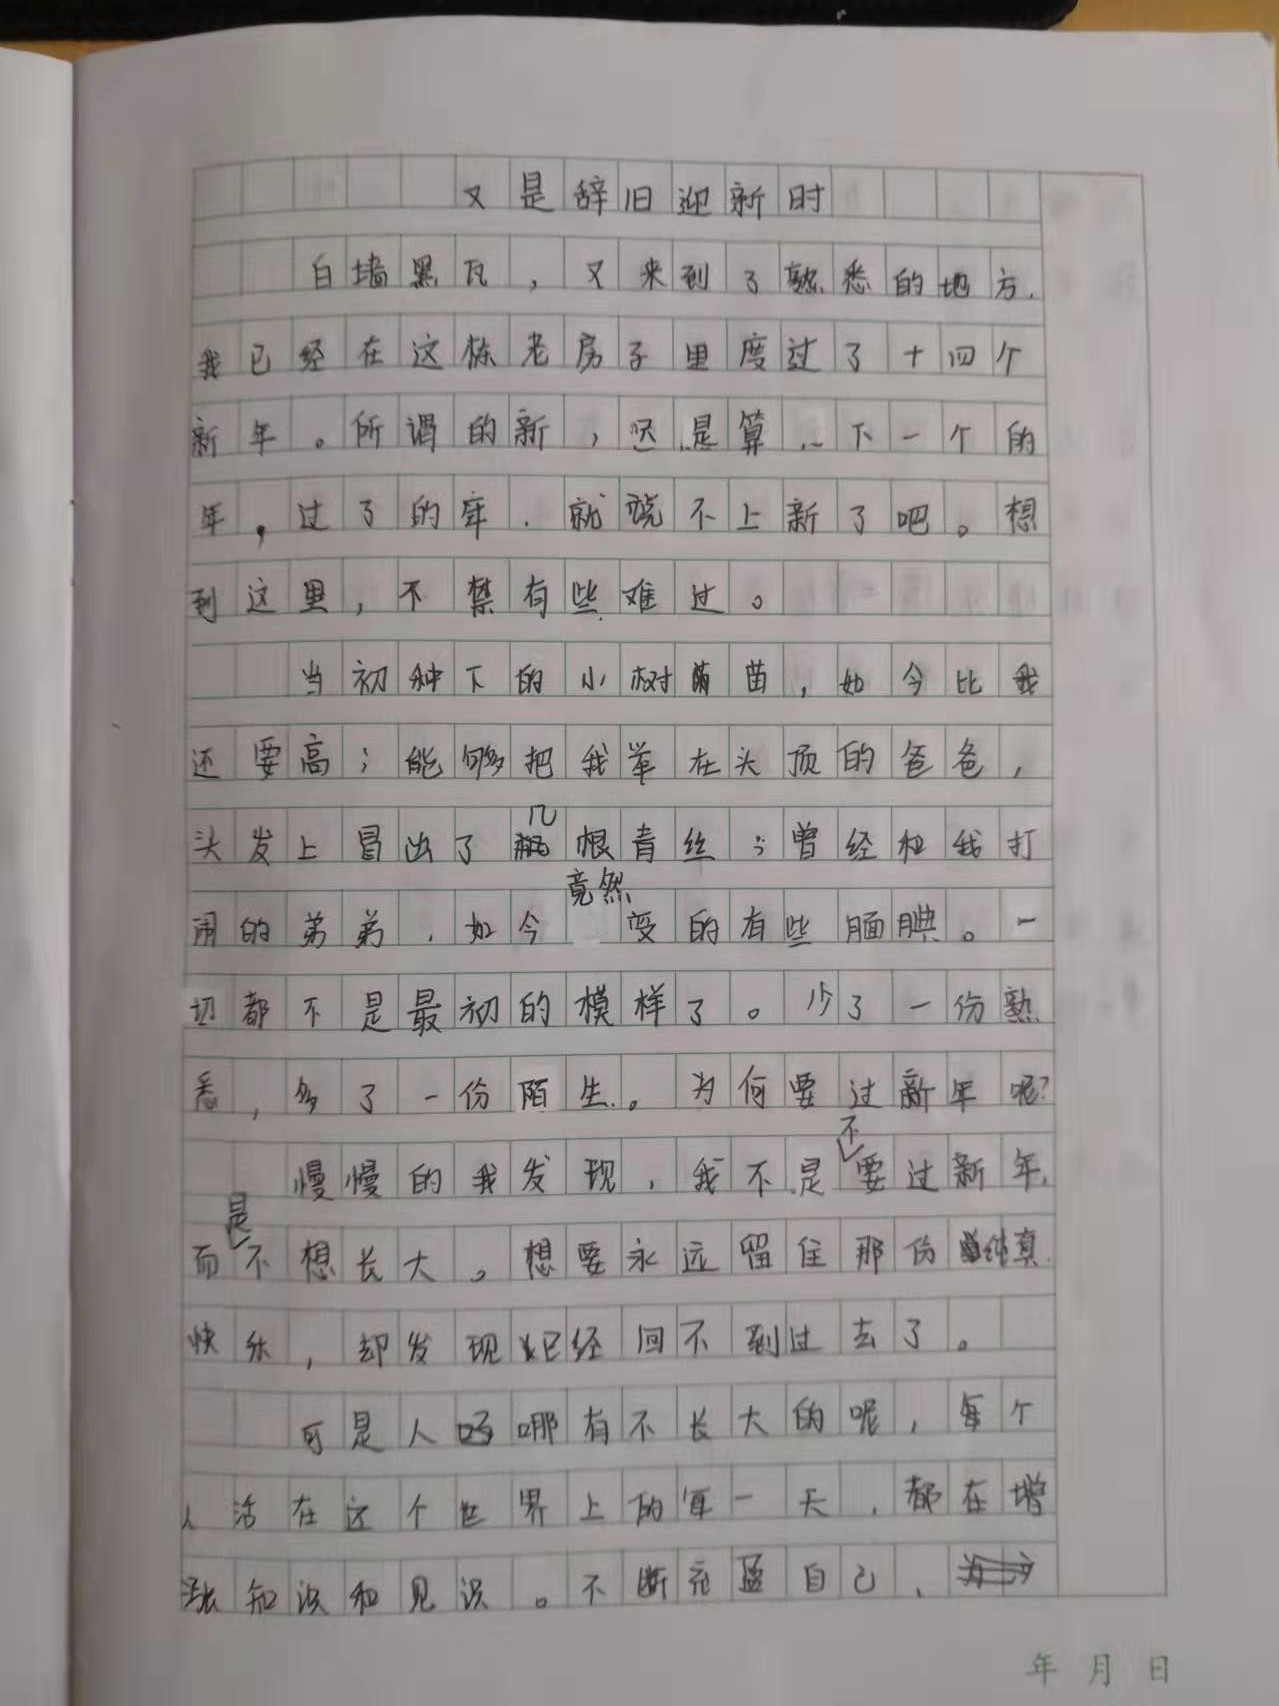 又是辞旧迎新时
白墙黑瓦，又来到了熟悉的地方.
我已经在这栋老房子里度过了十四个
新年。所谓的新，是算下一个的
年，过了的年.就说不上新了吧。想
到这里，不禁有些难过。
当初种下的小树苗，如今比我
还要高；能够把我举在头顶的爸爸，
头发上冒出了几根青丝；曾经和我打
闹的弟弟.如今竟然变的有些腼腆。一
切都不是最初的模样了。少了一份熟
悉，多了一份陌生。为何要过新年呢?
慢慢的我发现，我不是不要过新年.
而是不想长大。想要永远留住那份纯真
快乐，却发现已经回不到过去了。
可是人哪有不长大的呢，每个
人活在这个世界上的每一天，都在增
涨知识和见识。不断充盈自己、
年 月 日